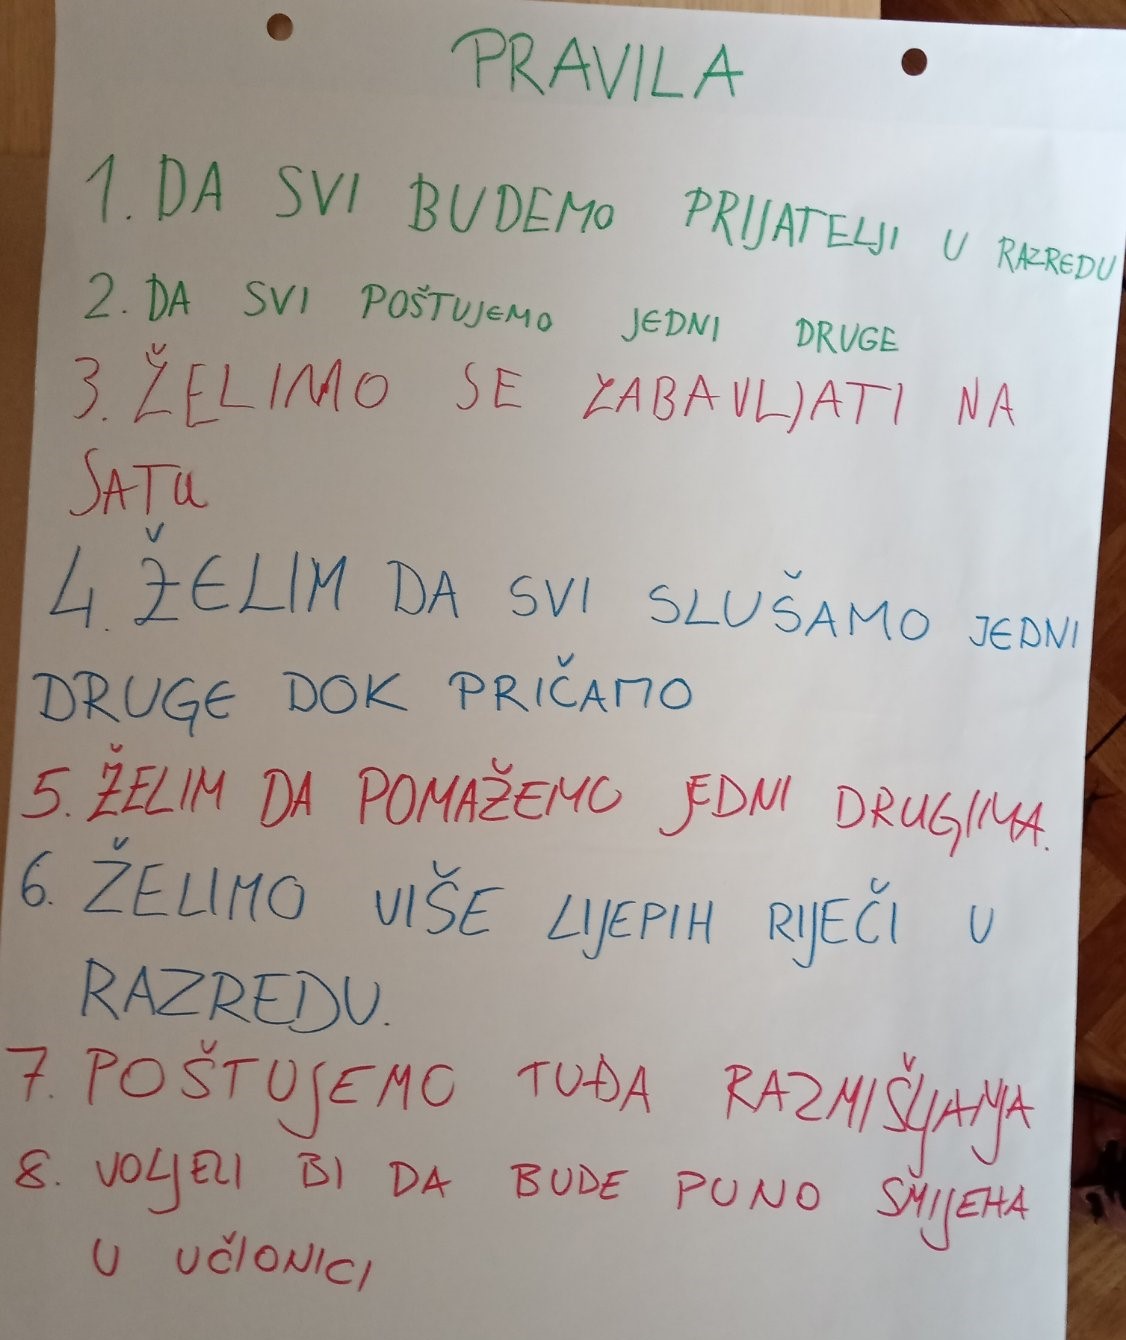 PRAVILA
1. DA SVI BUDEMO PRIJATELJI U RAZREDU
2. DA SVI POŠTUJEMO JEDNI DRUGE
3. ŽELIMO SE ZABAVLJATI NA
SATU
4. ŽELIM DA SVI SLUŠAMO JEDNI
DRUGE DOK PRIČAMO
5. ŽELIM DA POMAŽEMO JEDNI DRUGIMA.
6. ŽELIMO VIŠE LIJEPIH RIJEČI U
RAZREDU.
7. POŠTUJEMO TUĐA RAZMIŠLJANJA
8. VOLJELI BI DA BUDE PUNO SMIJEHA
U UČIONICI